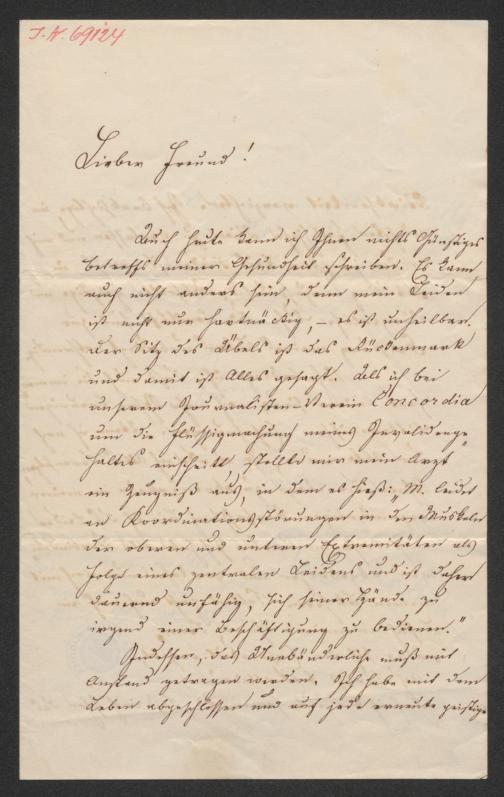 J. N. 69124
Lieber Freund!
Auch heute kann ich Ihnen nichts Günstiges
betreffs meiner Gesundheit schreiben. Es kann
auch nicht anders sein, denn mein Leiden
ist nicht nur hartnäckig, – es ist unheilbar.
Der Sitz des Übels ist das Rückenmark
und damit ist Alles gesagt. Als ich bei
unserem Journalisten-Verein Concordia
um die Flüssigmachung meines Invalidenge-
haltes einschritt, stellte mir mein Arzt
ein Zeugniß aus, in dem es hieß: „M. leidet
an Koordinationsstörungen in den Muskeln
der oberen und unteren Extremitäten als
Folge eines zentralen Leidens und ist daher
dauernd unfähig, sich seiner Hände zu
irgend einer Beschäftigung zu bedienen."
Indessen, das Unabänderliche muß mit
Anstand getragen werden. Ich habe mit dem
Leben abgeschlossen und auf jede erneute geistige